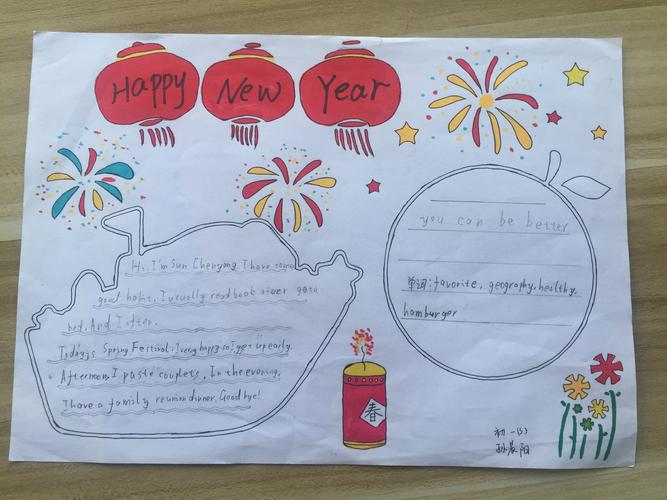 Happy New Year
Hi, I'm Sun Chenyang I have some
good habit. I usually read book after go to
bed. And I often.
Today is Spring Festival. I very happy so I get up early.
Afternoon I paste couplets. In the evening,
I have a family reunion dinner. Good bye!
you can be better
单词: favorite, geography, healthy,
hamburger
春
初一(3)
孙晨阳